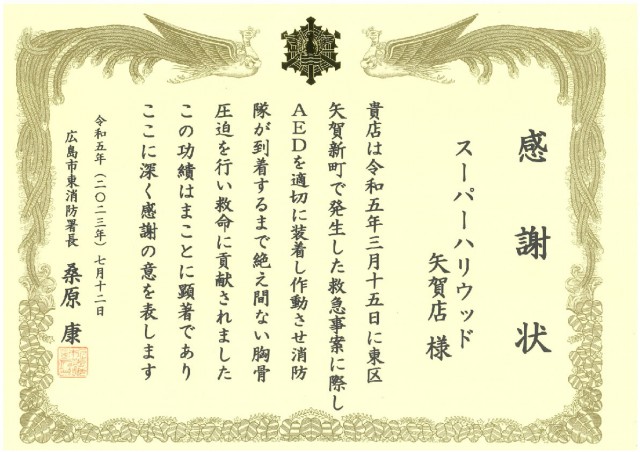 感謝状
スーパーハリウッド
矢賀店 様
貴店は令和五年三月十五日に東区
矢賀新町で発生した救急事案に際し
AEDを適切に装着し作動させ消防
隊が到着するまで絶え間ない胸骨
圧迫を行い救命に貢献されました
この功績はまことに顕著であり
ここに深く感謝の意を表します
令和五年(二〇二三年)七月十二日
広島市東消防署長 桑原 康